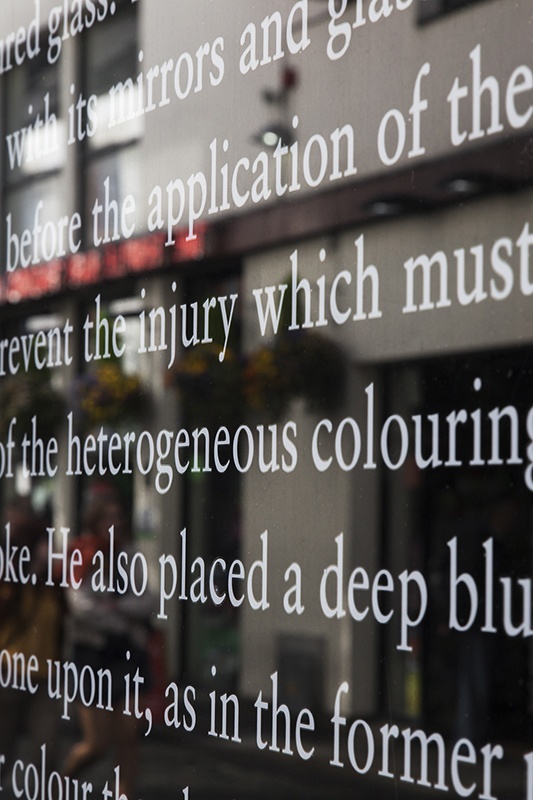 ured glass.
with its mirrors and glas
before the application of the
revent the injury which must
of the heterogeneous colouring
oke. He also placed a deep blu
one upon it, as in the former
r colour th